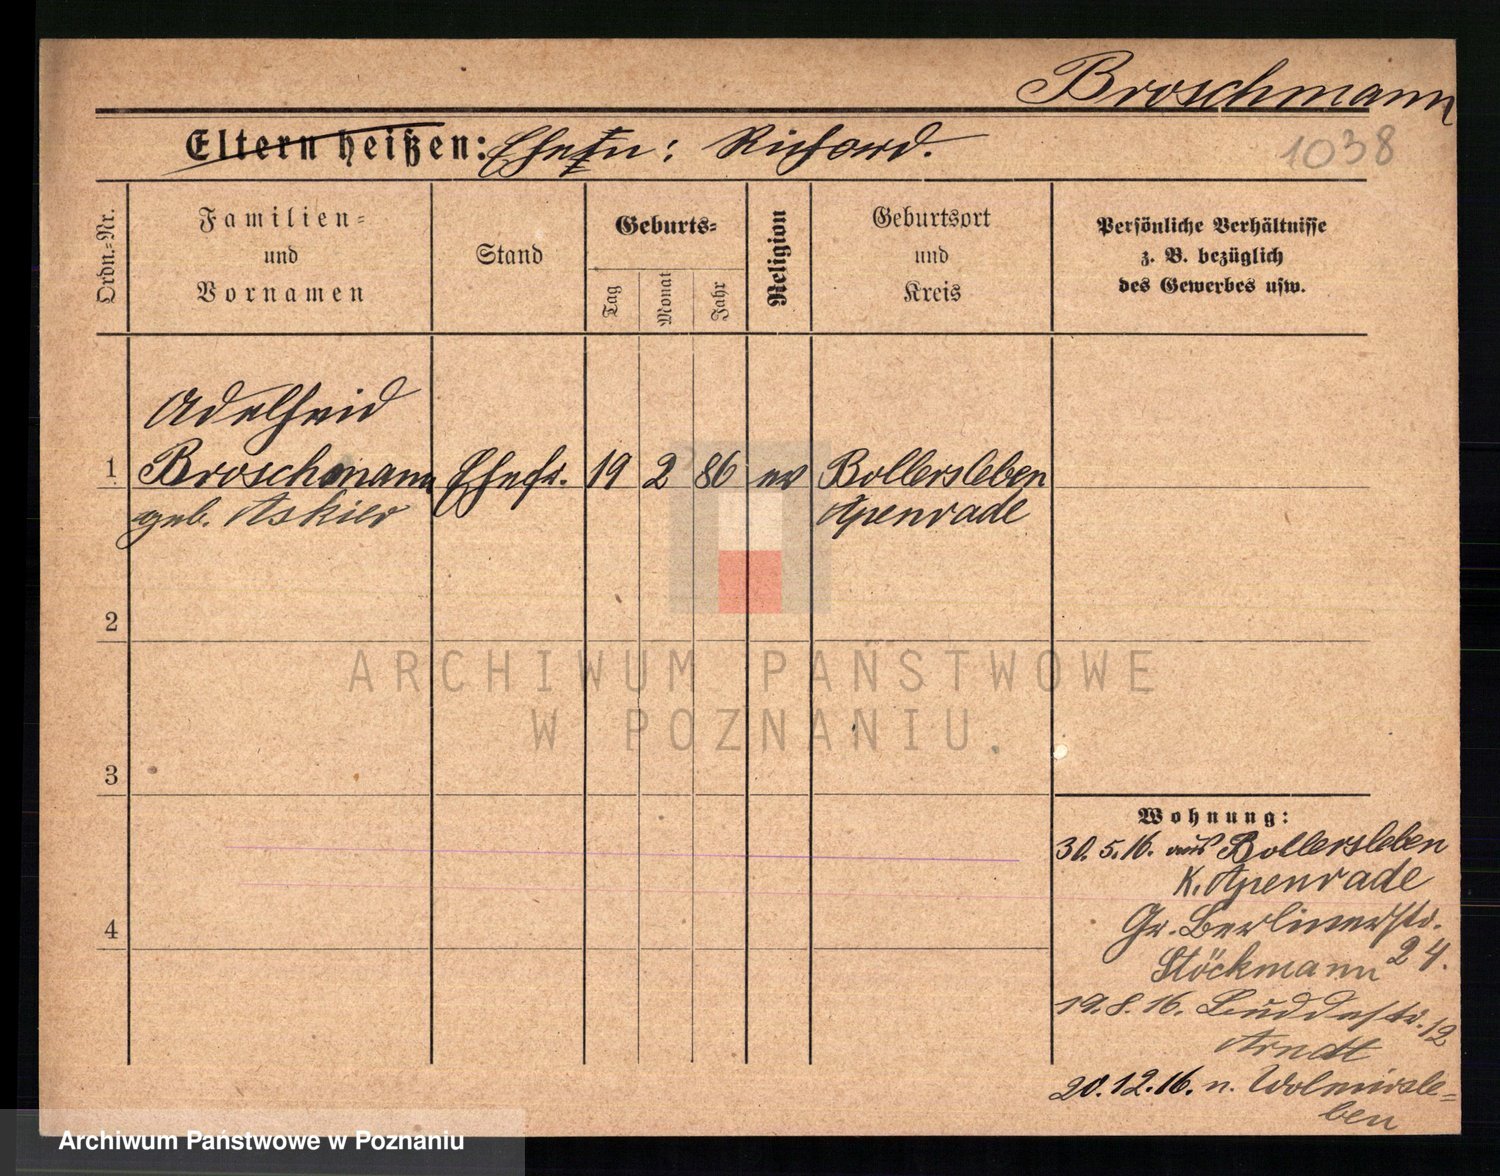 Broschmann
Eltern heißen: Ehefr: Richard.
1038
Ordn.-Nr.
Familien-
und
Vornamen
Stand
Geburts-
Tag
Monat
Jahr
Religion
Geburtsort
und
Kreis
Persönliche Verhältnisse
z. B. bezüglich
des Gewerbes usw.
Adelheid
1 Broschmann Ehefr. 19 2 86 ev Bollersleben
geb. Askier Apenrade
2
ARCHIWUM PAŃSTWOWE
W POZNANIU
3
Wohnung:
30.5.16. aus Bollersleben
K. Apenrade
4
Gr. Berlinerstr.
Stöckmann 24.
19.8.16. Buddestr. 12
Arndt
20.12.16. n. Wolmirsle=
ben
Archiwum Państwowe w Poznaniu